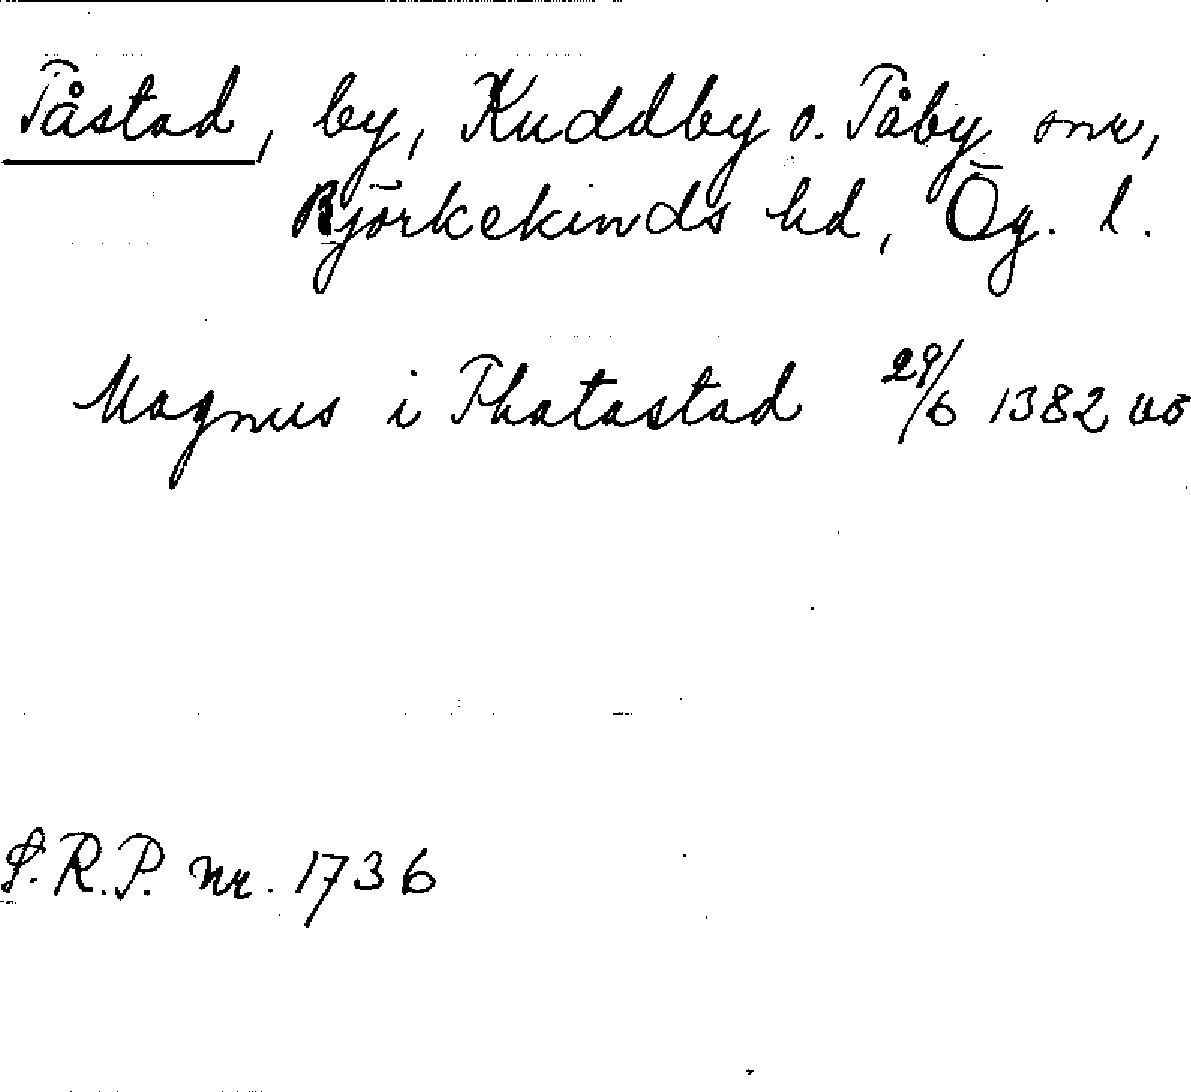 Tåstad, by, Kuddby o. Tåby snr,
Björkekinds hd, Ög. l.
Magnus i Thatastad 29/6 1382 uo
S.R.P. nr. 1736